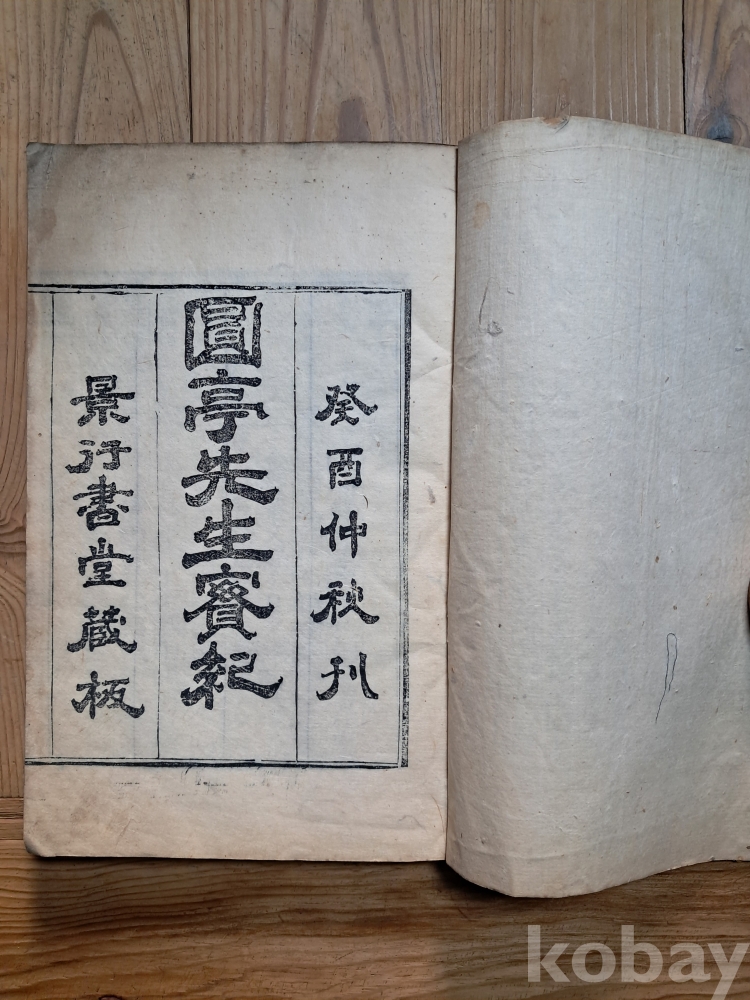 癸酉仲秋刊
圓亭先生實紀
景行書堂藏板
kobay